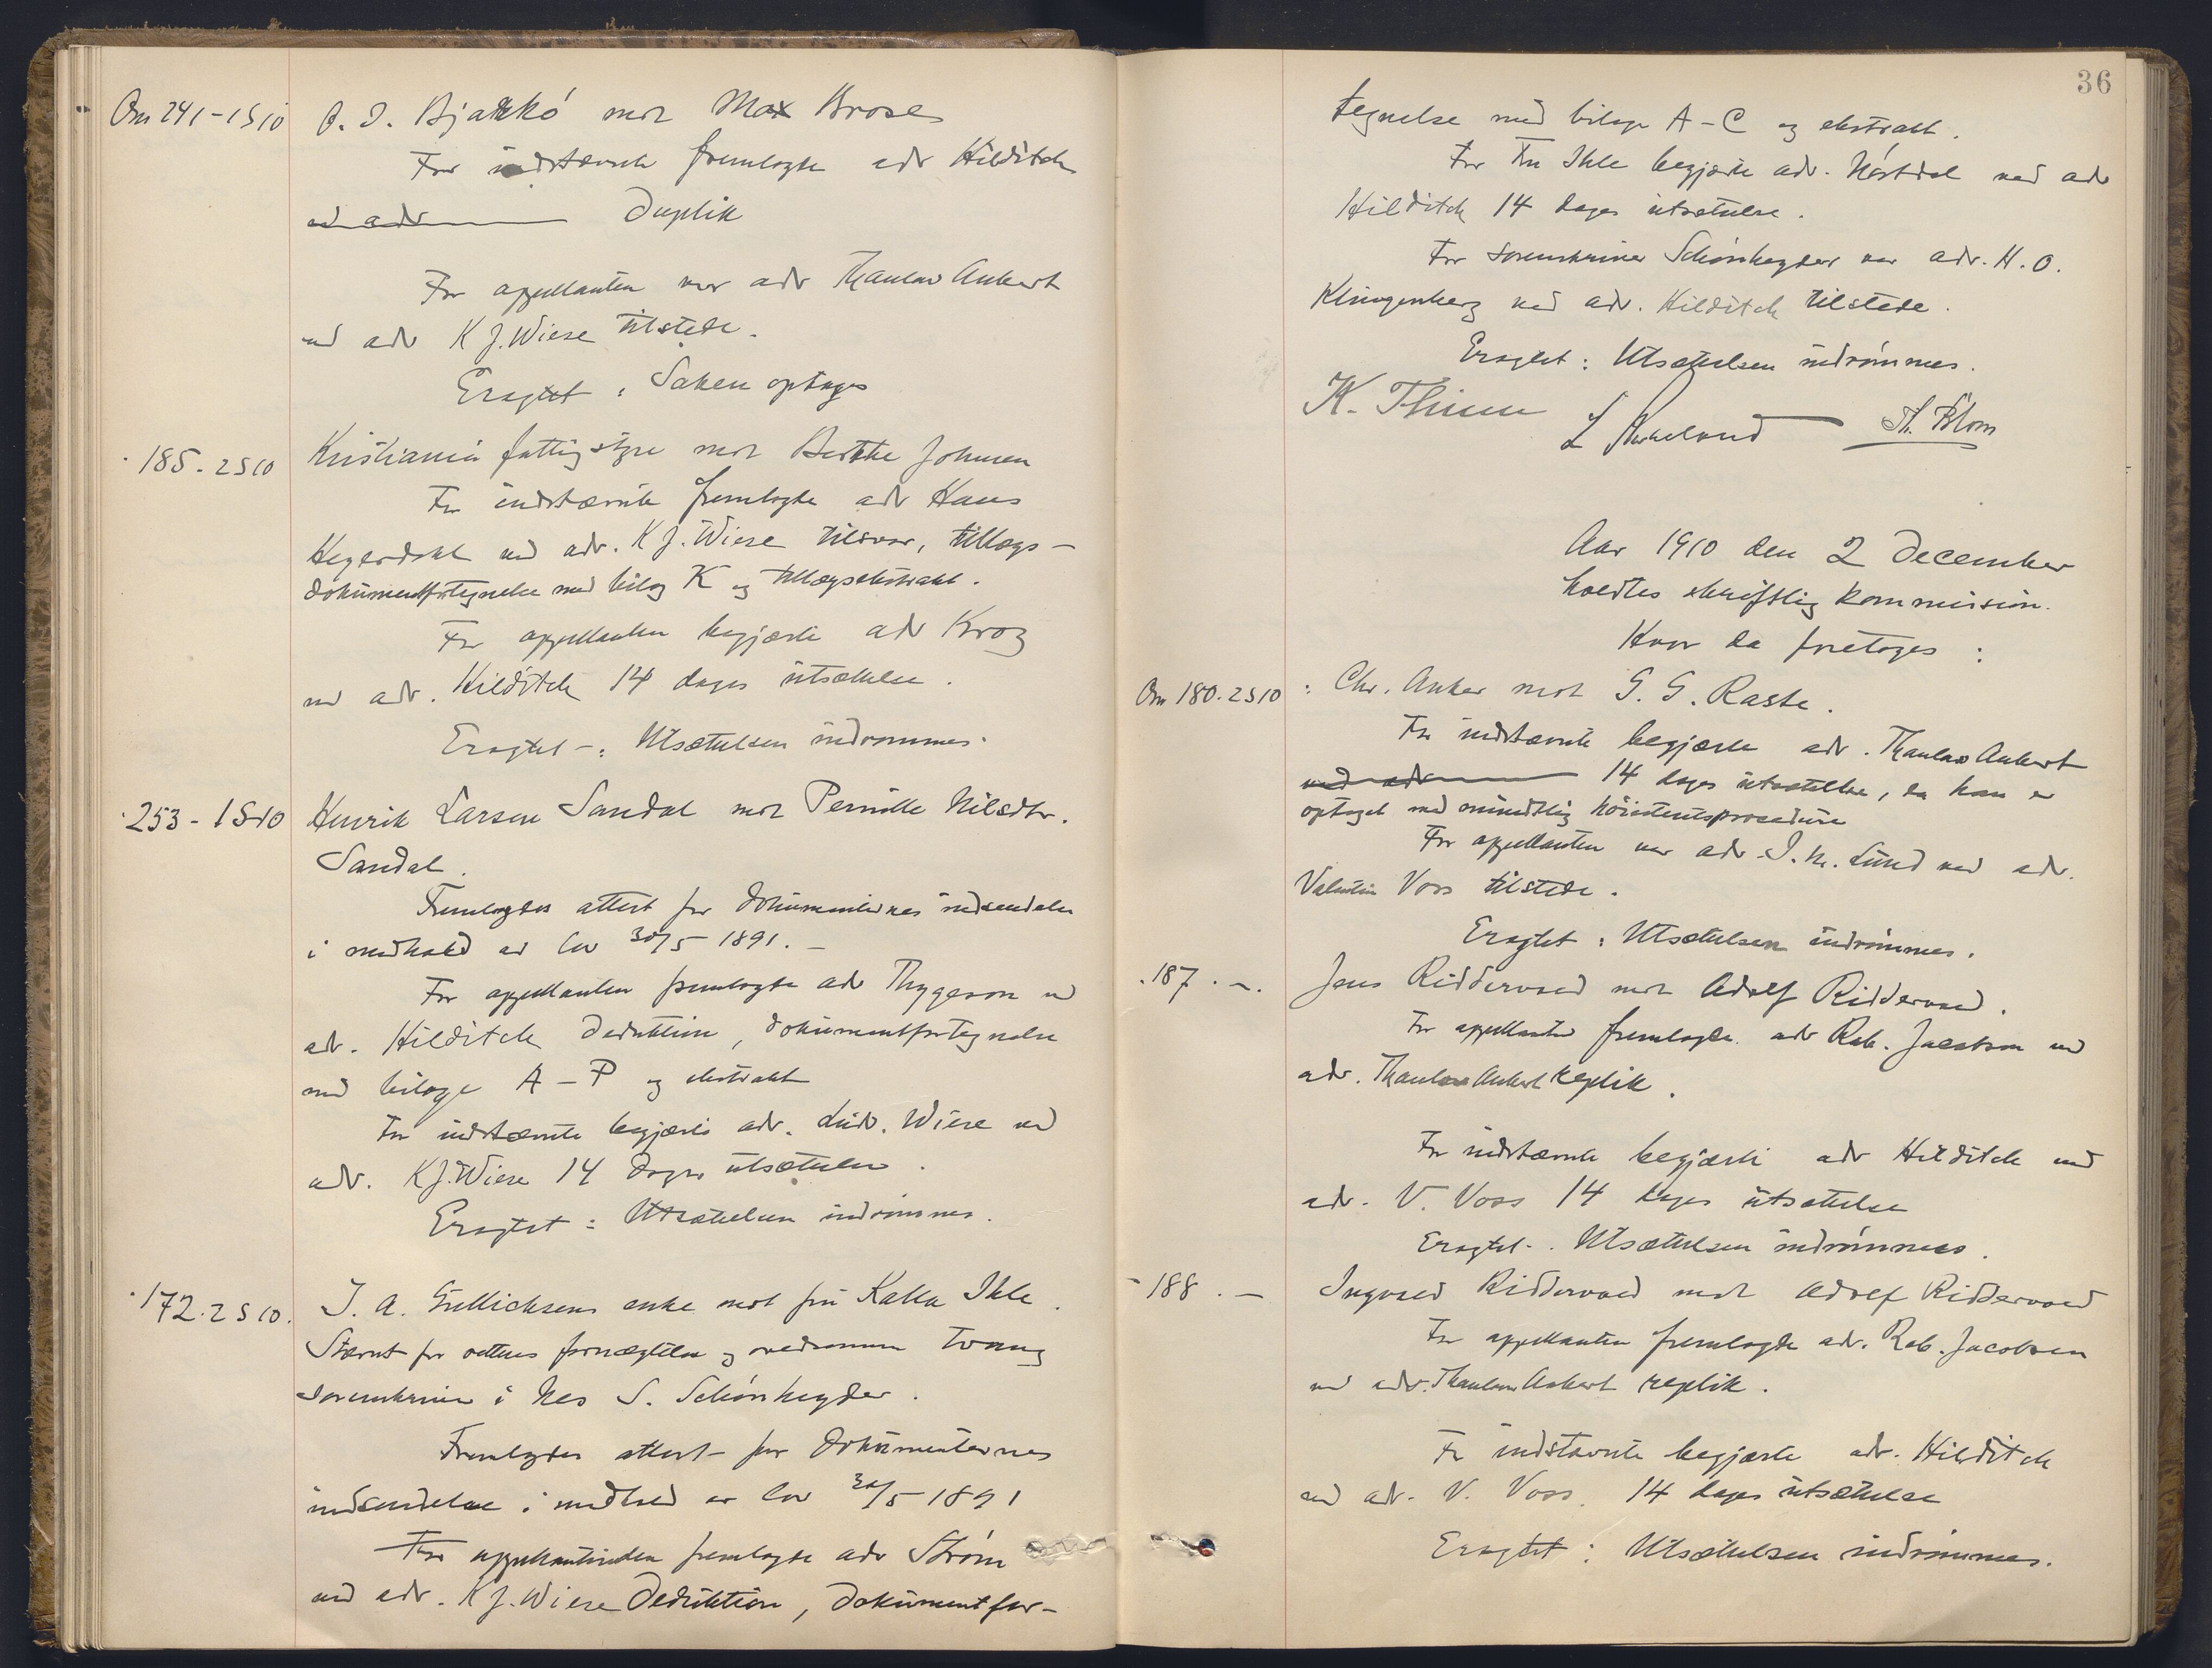 Om 241-1S10 O. J. Bjarkö mot Max Brose
For indstævnte fremlagte adv Hilditch
ved adv Duplik
For appellanten var adv Thaulow Aubert
ved adv K J. Wiese tilstede.
Eragtet: Saken optages
185. 2S10 Kristiania fattigstyre mot Berthe Johnsen
For indstævnte fremlagte adv Hans
ved adv. K J. Wiese tilsvar, tillægs-
dokumentfortegnelse med bilag K og tillægsekstrakt.
For appellanten begjærte adv Krog
ved adv. Hilditch 14 dages utsættelse.
Eragtet-: Utsættelsen indrømmes.
253-1S10 Henrik Larsen Sandal mot Pernille Nilsdtr.
Sandal.
Fremlagdes attest for dokumenternes indsendelse
i medhold av lov 30/5 1891. -
For appellanten fremlagte adv Thygeson ved
adv. Hilditch Deduktion, dokumentfortegnelse
med bilage A-P og ekstrakt
For indstævnte begjærte adv. Ludv. Wiese ved
adv. K J. Wiese 14 dages utsættelse.
Eragtet: Utsættelsen indrømmes.
172. 2S10. J. A. Gullicksens enke mot fru Kalla Ihle.
Stævnt for rettens fornægtelse og
sorenskriver i Nes S. Schönheyder.
Fremlagdes attest for dokumenternes
indsendelse i medhold av lov 30/5 1891
For appellantinden fremlagte adv Strøm
ved adv. K J. Wiese Deduktion, Dokumentfor-
36
tegnelse med bilage A-C og ekstrakt.
For Fru Ihle begjærte adv. Nørstdal ved adv
Hilditch 14 dages utsættelse.
For sorenskriver Schönheyder var adv. H. O.
Klingenberg ved adv. Hilditch tilstede.
Eragtet: Utsættelsen indrømmes.
K. Thinn L Th. Blom
Aar 1910 den 2 December
holdtes skriftlig kommission.
Hvor da foretoges:
Om 180. 2S10 : Chr. Anker mot G. G. Raste.
For indstævnte begjærte adv. Thaulow Aubert
ved adv 14 dages utsættelse, da han er
optaget med mundtlig høiesteretsprocedure
For appellanten var adv. J. M. Lund ved adv.
Valentin Voss tilstede.
Eragtet: Utsættelsen indrømmes.
. 187. -. Jens Riddervold mot Adolf Riddervold.
For appellanten fremlagde adv Rob. Jacobsen ved
adv. Thaulow Aubert replik.
For indstævnte begjærte adv Hilditch ved
adv. V. Voss 14 dages utsættelse
Eragtet-. Utsættelsen indrømmes.
- 188. - Ingvald Riddervold mot Adolf Riddervold
For appellanten fremlagde adv. Rob. Jacobsen
ved adv. Thaulow Aubert replik.
For indstævnte begjærte adv. Hilditch
ved adv. V. Voss. 14 dages utsættelse
Eragtet: Utsættelsen indrømmes.